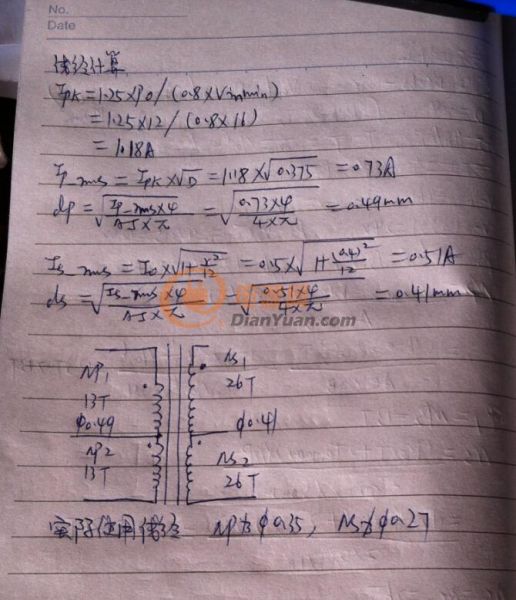 No.
Date
线径计算
Ipk = 1.25×Po/(0.8×Vinmin)
= 1.25×12/(0.8×16)
= 1.18A
Ip_rms = Ipk×√D = 1.18×√0.375 = 0.73A
dp = √(Ip_rms×4/(AJ×π)) = √(0.73×4/(4×π)) = 0.49mm
Is_rms = Io×√(1+r²/12) = 0.5×√(1+(0.4)²/12) = 0.51A
ds = √(Is_rms×4/(AJ×π)) = √(0.51×4/(4×π)) = 0.41mm
DianYuan.com
NP1 NS1
13T 26T
φ0.49 φ0.41
NP2 NS2
13T 26T
实际使用线径 NP为φ0.35, NS为φ0.27